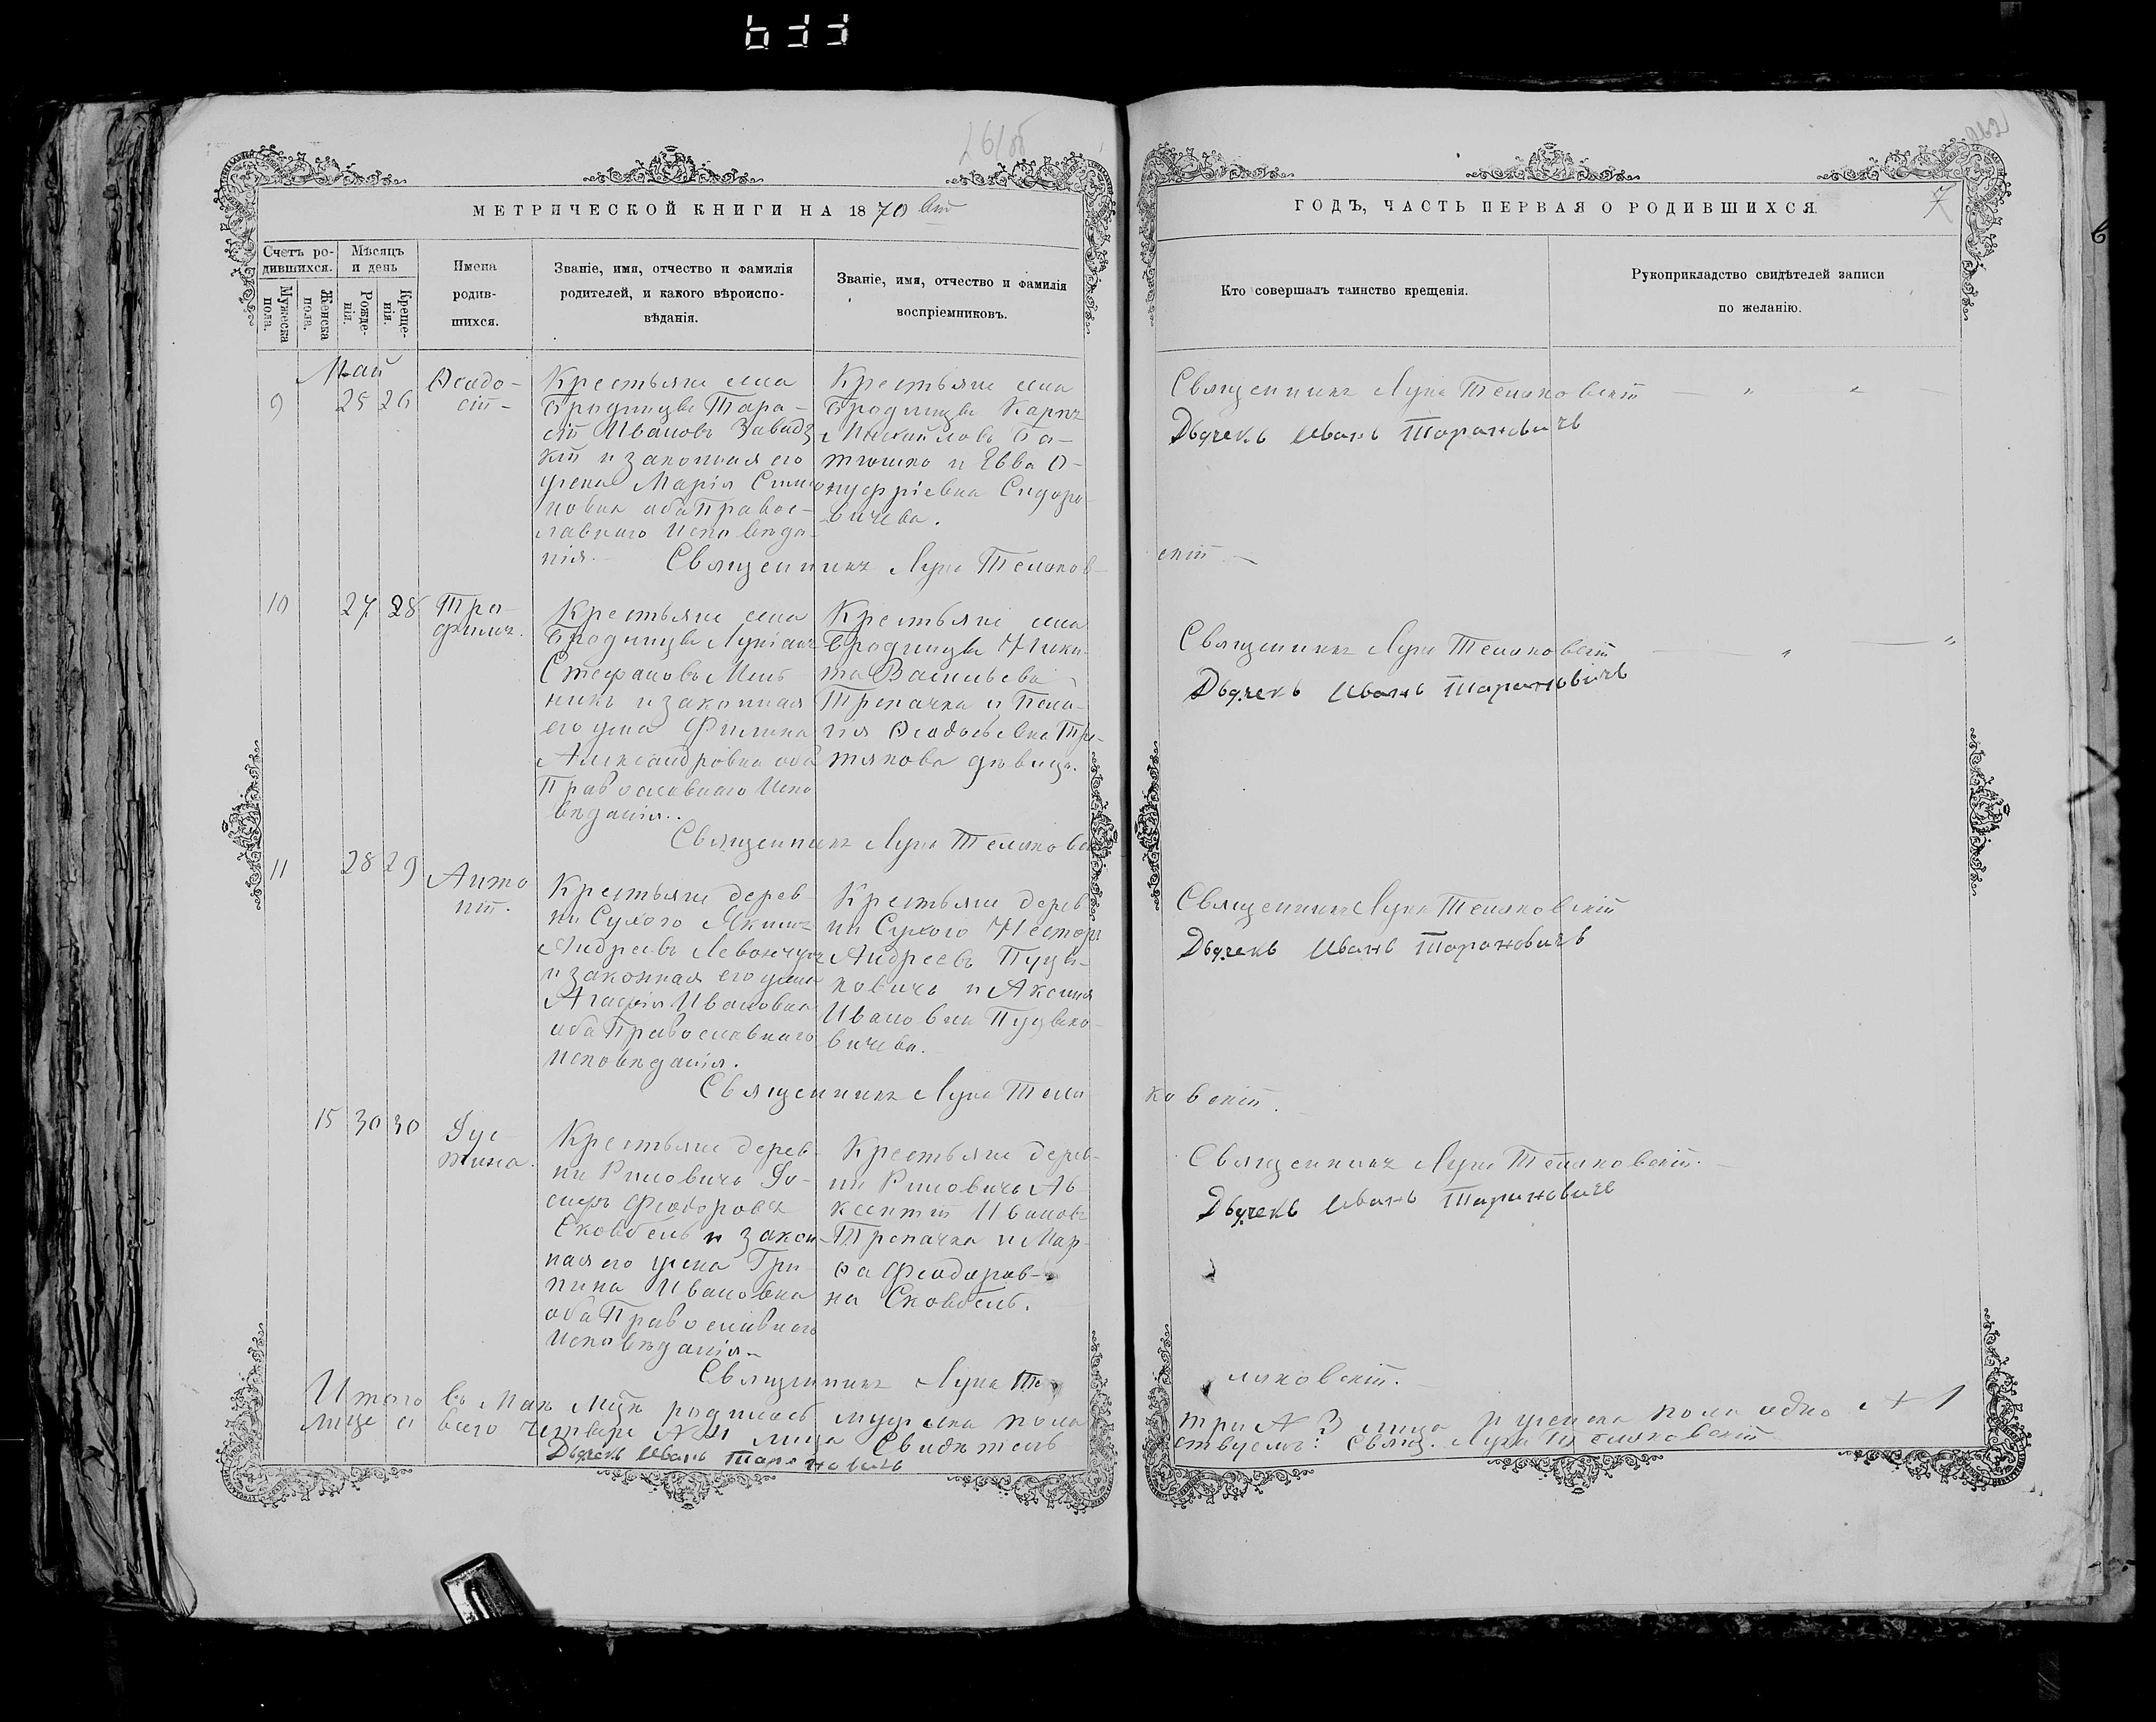 МЕТРИЧЕСКОЙ КНИГИ НА 1870
Счетъ родившихся.
Мужеска пола.
Женска пола.
Мѣсяцъ и день
Рожденія.
Крещенія.
Имена родившихся.
Званіе, имя, отчество и фамилія
родителей, и какого вѣроиспо-
вѣданія.
Званіе, имя, отчество и фамилія
воспріемниковъ.
Май
9 25 26
Ѳеодо-
сій
Крестьяне села
Бродницы Тара-
сій Ивановъ
и законная его
жена Марія
новна оба Правос-
лавнаго Исповѣда-
нія.
Крестьяне села
Бродницы Карпъ
Михайловъ Ба-
тюшко и Евва О-
нуфріевна Сидоро-
вичева.
Священникъ Лука Теляков-
10 27 28
Тро-
фимъ.
Крестьяне села
Бродницы Лукіанъ
Стефановъ Мель-
никъ и законная
его жена
Александровна оба
Православнаго Испо-
вѣданія.
Крестьяне села
Бродницы Ники-
та Васильевъ
Трепачка и Пела-
гія Ѳеодосьевна
дѣвица.
Священникъ Лука Теляковс
11 28 29
Анто-
ній.
Крестьяне дерев-
ни Сухого Якимъ
Андреевъ Левончукъ
и законная его жена
Агафія Ивановна
оба Православнаго
исповѣданія.
Крестьяне дерев-
ни Сухого Несторъ
Андреевъ Пуць-
ковичъ и Аксинія
Ивановна Пуцько-
вичева.
Священникъ Лука Теля-
15 30 30
Іус-
тина.
Крестьяне дерев-
ни Рыловичъ Іо-
сифъ Феодоровъ
Сковбель и закон-
ная его жена Гри-
пина Ивановна
оба Православнаго
Исповѣданія.
Крестьяне дерев-
ни Рыловичъ Ав-
ксентій Ивановъ
Трепачка и Мар-
ѳа Феодоров-
на Сковбель.
Священникъ Лука Те-
Итого въ Маѣ мѣсяцѣ родилось мужеска пола
лице а всего четыре № 4 лица Свидѣтель-
Дьячекъ Иванъ Тарановичъ
ГОДЪ, ЧАСТЬ ПЕРВАЯ О РОДИВШИХСЯ.
7
Кто совершалъ таинство крещенія.
Рукоприкладство свидѣтелей записи
по желанію.
Священникъ Лука Теляковскій
Дьячекъ Иванъ Тарановичъ
скій
Священникъ Лука Теляковскій
Дьячекъ Иванъ Тарановичъ
Священникъ Лука Теляковскій
Дьячекъ Иванъ Тарановичъ
ковскій.
Священникъ Лука Теляковскій.
Дьячекъ Иванъ Тарановичъ
ляковскій.
три № 3 лица и женска пола одно № 1
ствуемъ: Свящ. Лука Теляковскій